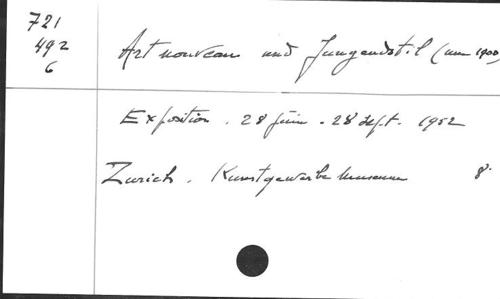 721
492
6
Art nouveau und Jugendstil (um 1900)
Exposition . 28 juin - 28 sept. 1952
Zurich . Kunstgewerbe museum 8°